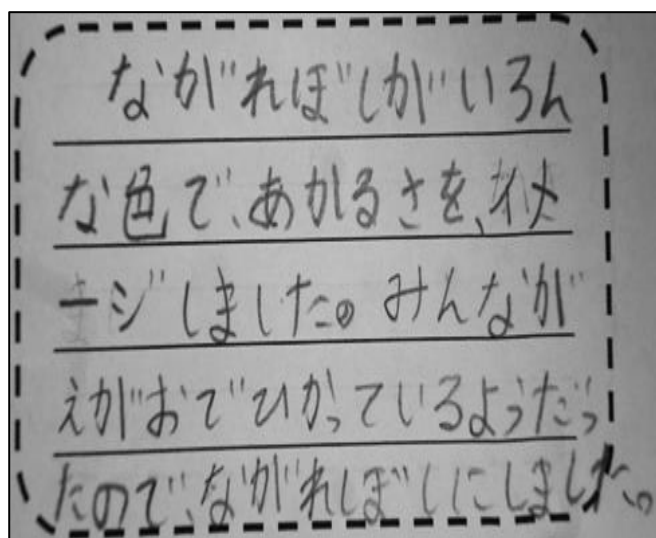 ながれぼしがいろん
な色で、あかるさを、イメ
ージしました。みんなが
えがおでひかっているようだっ
たので、ながれぼしにしました。